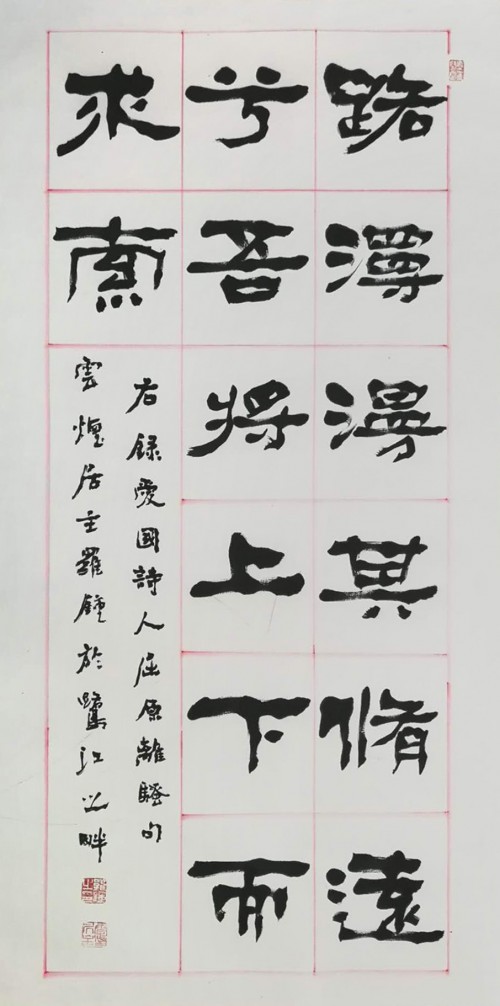 路漫漫其脩遠
兮吾将上下而
求索
右錄愛國詩人屈原離騷句
雲煙居主羅鍾於鷺江之畔